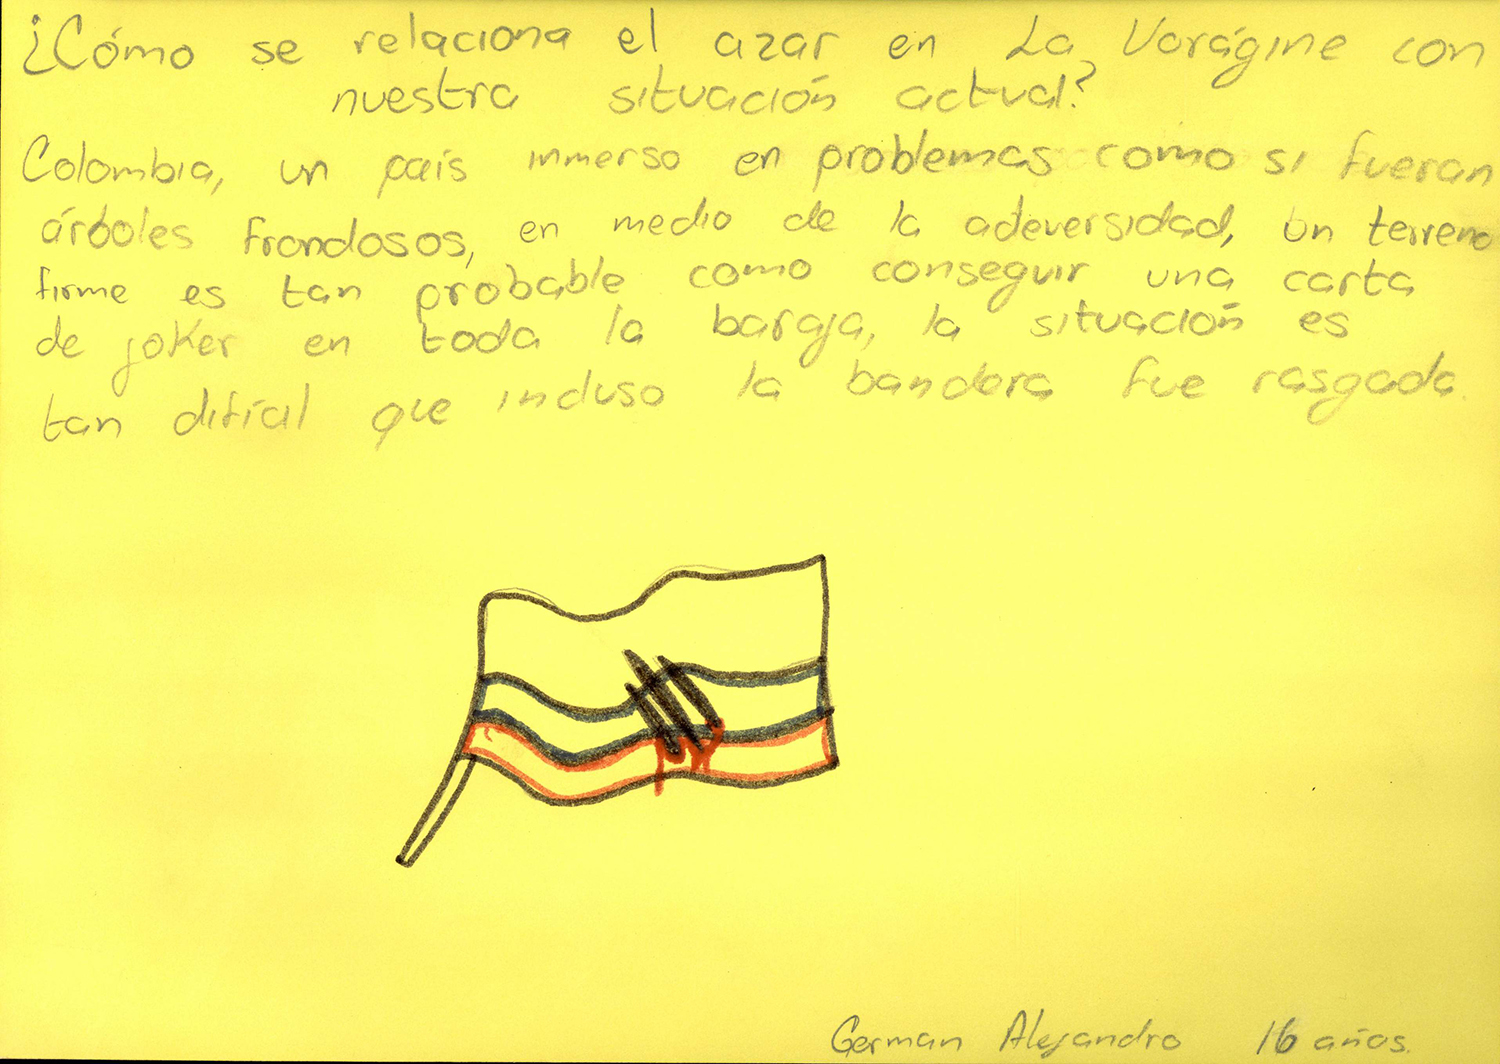 ¿Cómo se relaciona el azar en La Vorágine con
nuestra situación actual?
Colombia, un país inmerso en problemas como si fueran
árboles frondosos, en medio de la adeversidad, un terreno
firme es tan probable como conseguir una carta
de joker en toda la baraja, la situación es
tan difícil que incluso la bandera fue rasgada.
German Alejandro 16 años.